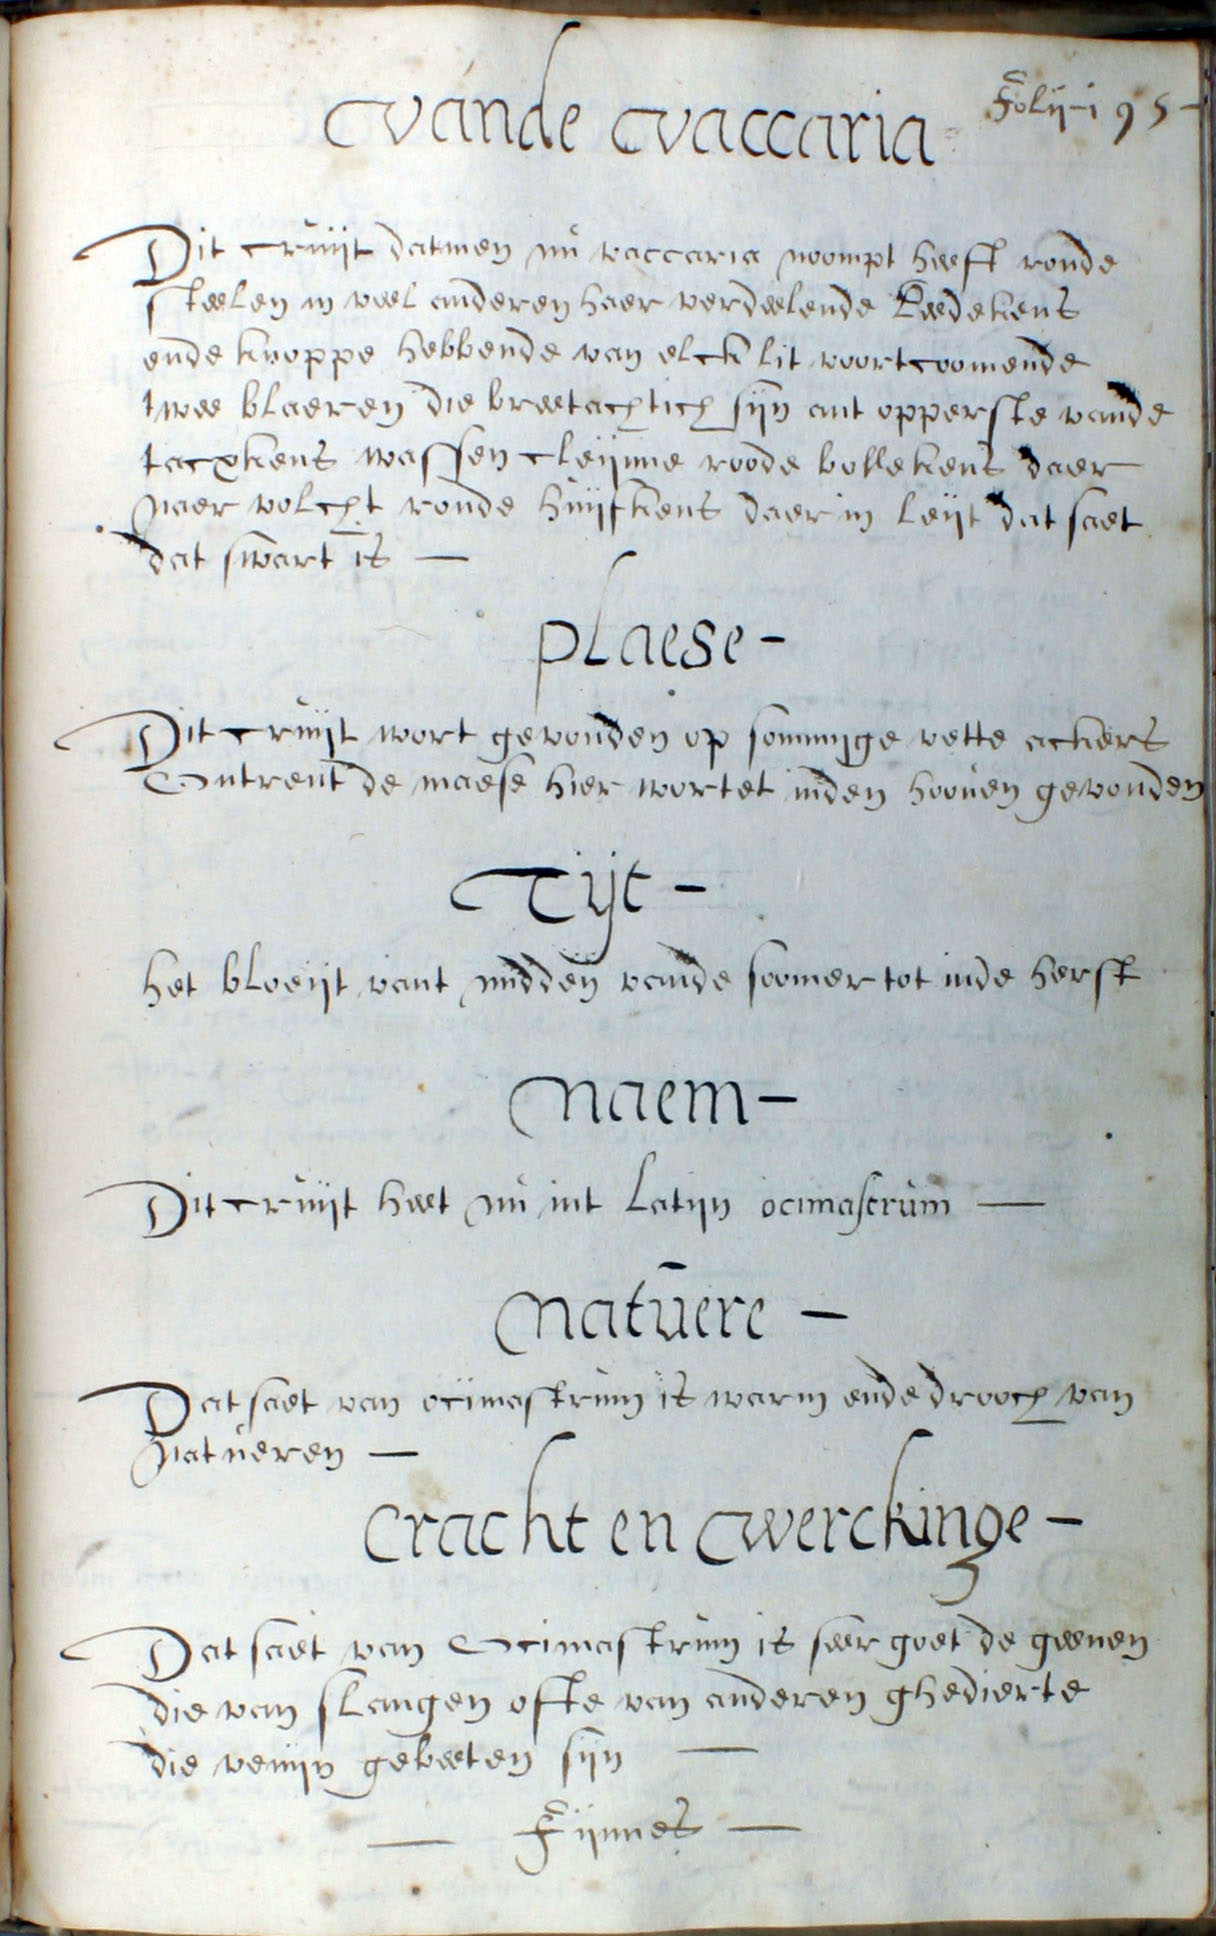 Folij-195-
Vande Vaccaria
Dit cruijt datmen nu vaccaria noompt heeft ronde
steelen in veel anderen haer verdeelende Leedekens
ende knoppe hebbende van elck lit voortcoomende
twee blaeren die breetachtich sijn ant opperste vande
tacxkens wassen cleijnne roode bollekens daer
naer volcht ronde huijskens daer in leijt dat saet
dat swart is —
plaese -
Dit cruijt wort gevonden op sommijge vette ackers
Ontrent de maese hier wortet inden hooven gevonden
Tijt -
het bloeijt vant midden vande soomer tot inde herfst
Naem -
Dit cruijt heet nu int Latijn ocimastrum —
Natuere -
Dat saet van ocijmastrum is warm ende drooch van
Natueren —
Cracht en Werckinge -
Dat saet van Ocimastrum is seer goet de geenen
die van slangen ofte van anderen ghedierte
die venijn gebeeten sijn —
— Fijnnes —